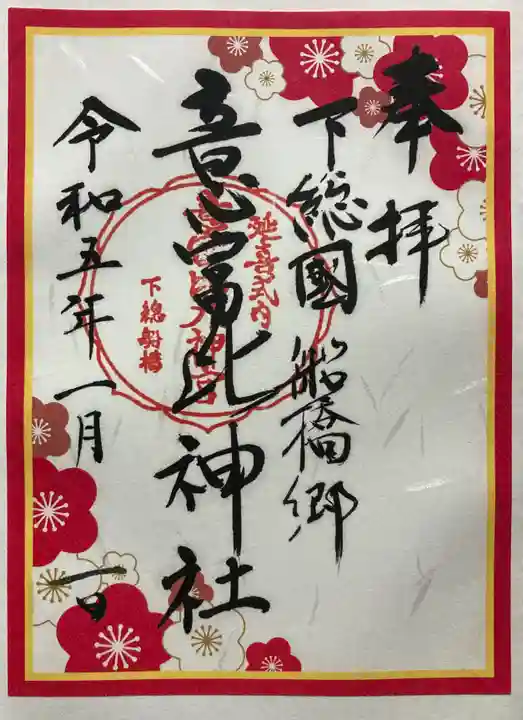 奉拝
下総國船橋郷
意富比神社
令和五年一月一日
延喜式内
意富比神宮
下総船橋